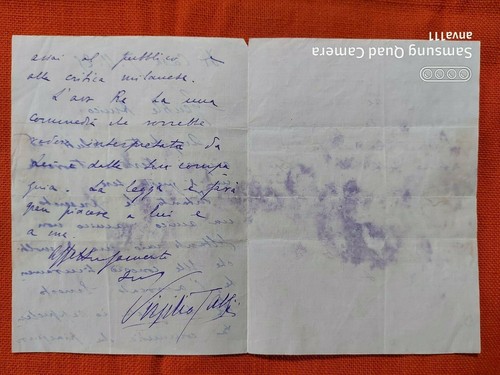 assai al pubblico e
alla critica milanese.
L'avv Re ha una
commedia che vorrebbe
interpretata da
Lei e dalla Sua compa
gnia. La legga e farà
gran piacere a lui e
a me.
Affettuosamente
Suo
Virgilio Talli
Samsung Quad Camera
anva111